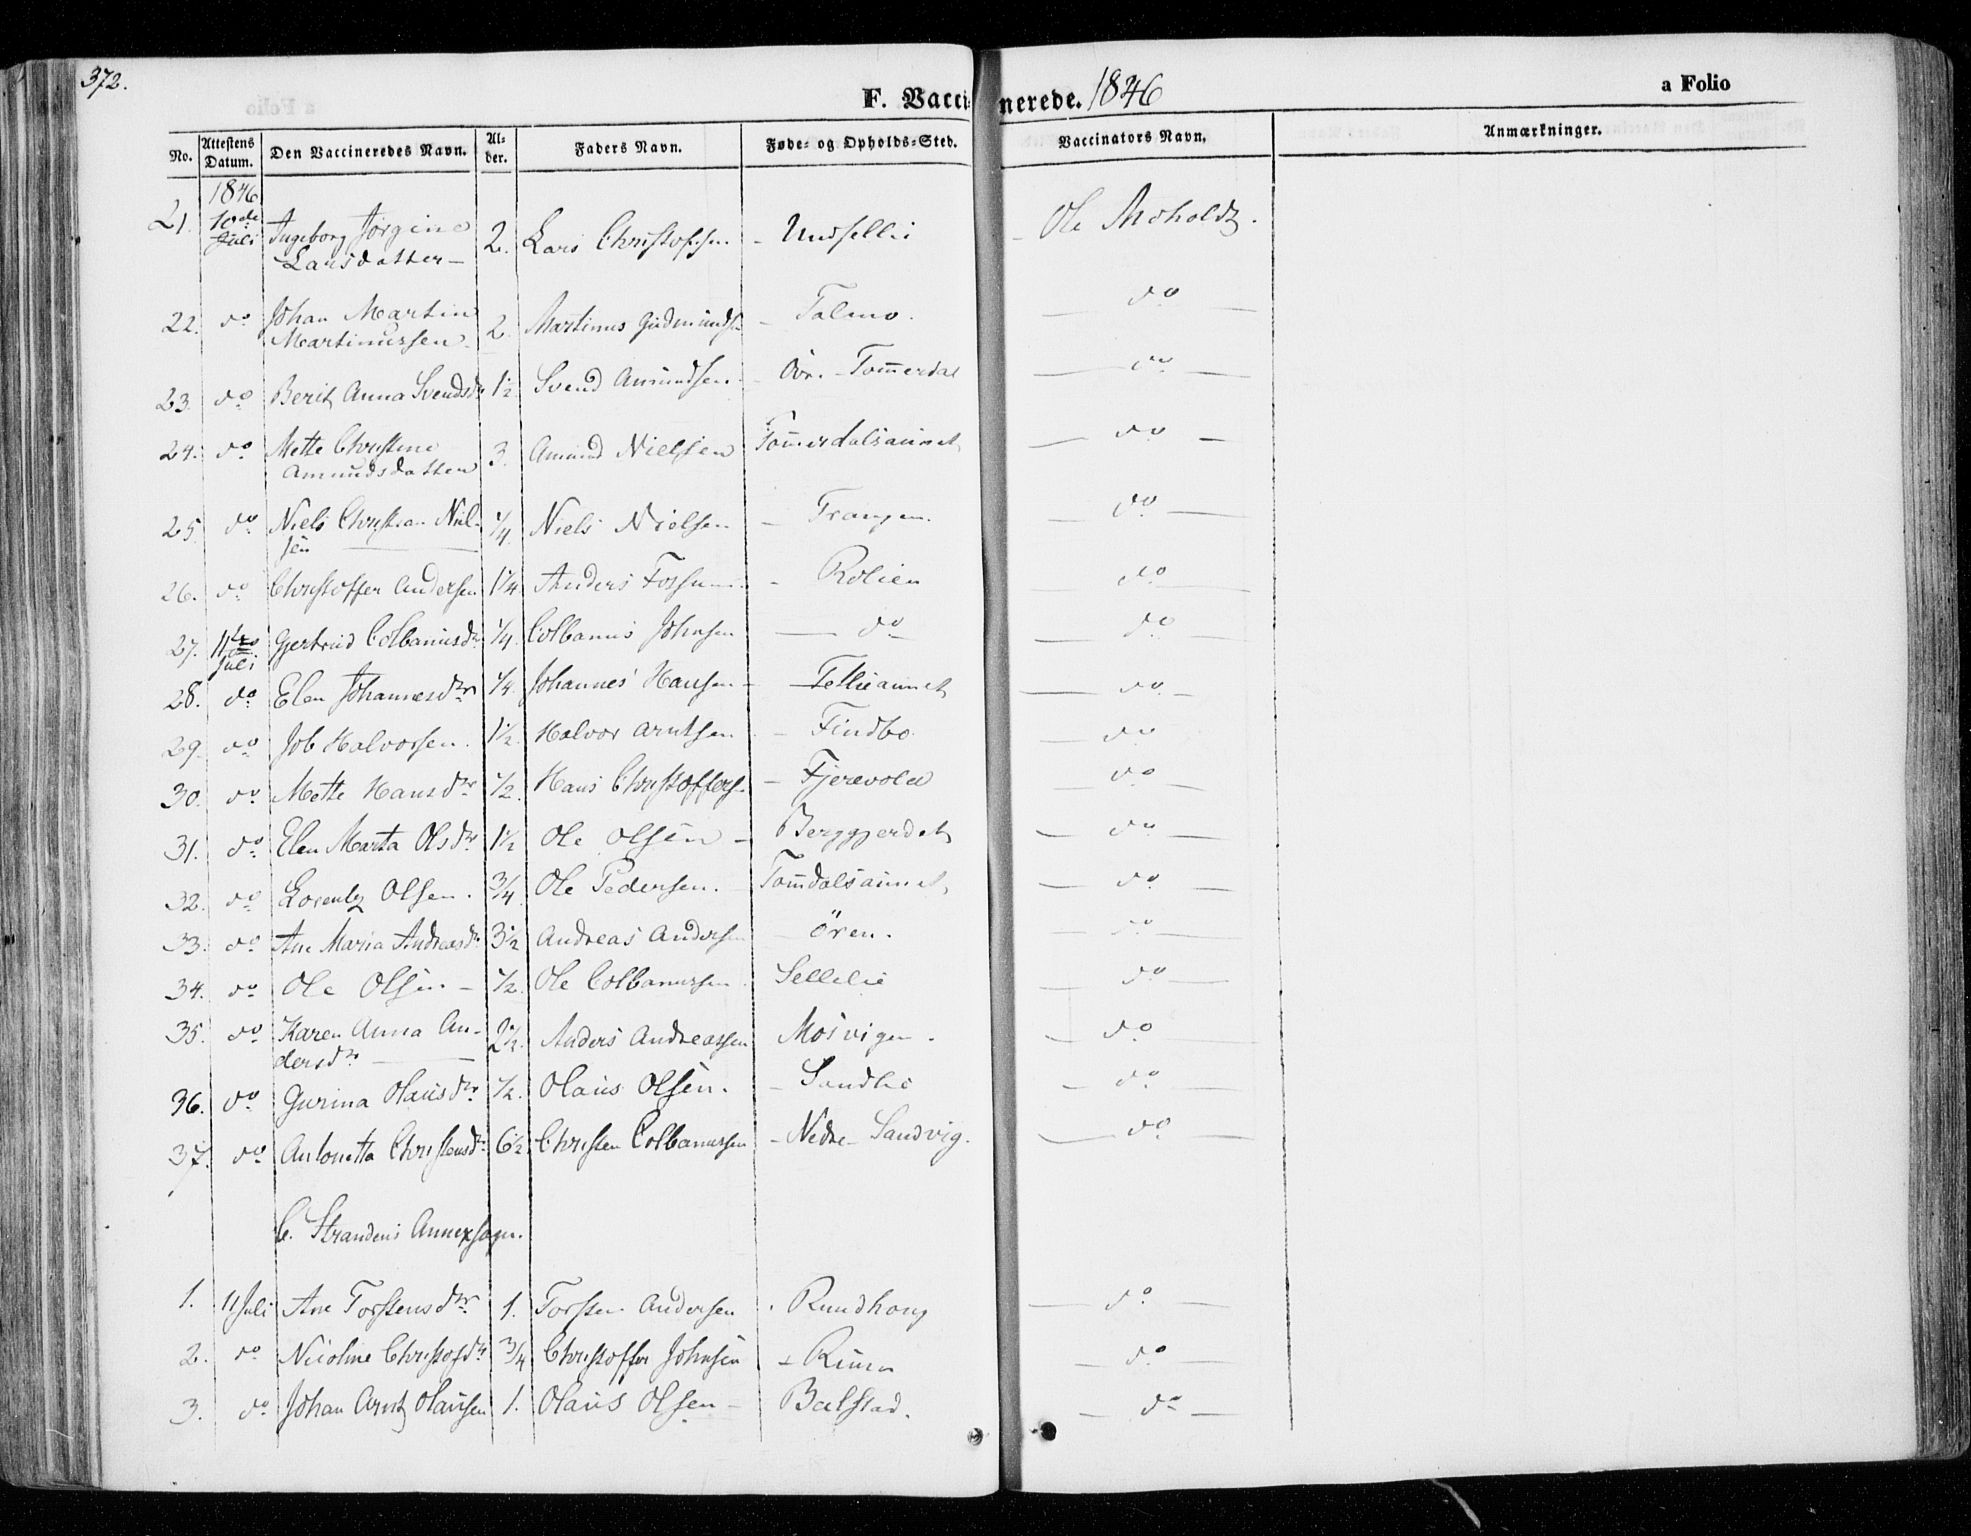 372.
F. Vaccinerede. 1846
a Folio
No. Attestens Datum. Den Vaccineredes Navn. Al-der. Faders Navn. Føde- og Opholds-Sted. Vaccinators Navn. Anmærkninger.
1846
21. 10de Juli Ingeborg Jørgine Larsdatter – 2. Lars Christophsen – Ole Moholdt.
22. do Johan Martin Martinussen 2. Martinus Gudmunds. – Talmo. – do –
23. do Berit Anna Svendsdr 1½ Svend Amundsen – Övr. Tom̄erdal – do –
24. do Mette Christine Amundsdatter 3. Amund Nielsen Tom̄erdalsaunet – do –
25. do Niels Christian Niel-sen 1/4. Niels Nielsen – Trangen. – do –
26. do Christoffer Andersen 1¼ Anders Fossum – Rolien – do –
27. 11te Juli Gjertrud Colbanusdr 1/4 Colbanus Johnsen – do – – do –
28. do Elen Johannesdr 1/4. Johannes Hansen – Tellieaunet – do –
29. do Job Halvorsen. 1½. Halvor Arntsen – Findbo – do –
30. do Mette Hansdr 1/2. Hans Christoffers. – Fjerevold – do –
31. do Elen Marta Olsdr 1½ Ole Olsen – Berggjerdet – do –
32. do Lorentz Olsen. 3/4. Ole Pedersen. – Tom̄dalsaunet – do –
33. do Ane Maria Andreasdr 3½ Andreas Andersen – Ören. – do –
34. do Ole Olsen – 1/2. Ole Colbanussen Sellelie – do –
35. do Karen Anna An-dersdr 2½. Anders Andreassen Mosvigen. – do –
36. do Gurina Olausdr 1/2. Olaus Olsen. – Sandlie – do –
37. do Antonetta Christensdr 6½ Christen Colbanussen – Nedre Sandvig. – do –
C. Strandens Annexsogn.
1. 11 Juli Ane Torstensdr 1. Torsten Andersen . Rundhoug – do –
2. do Nicoline Christofdr 3/4 Christoffer Johnsen – – do –
3. do Johan Arnt Olausen 1. Olaus Olsen – Balstad. – do –